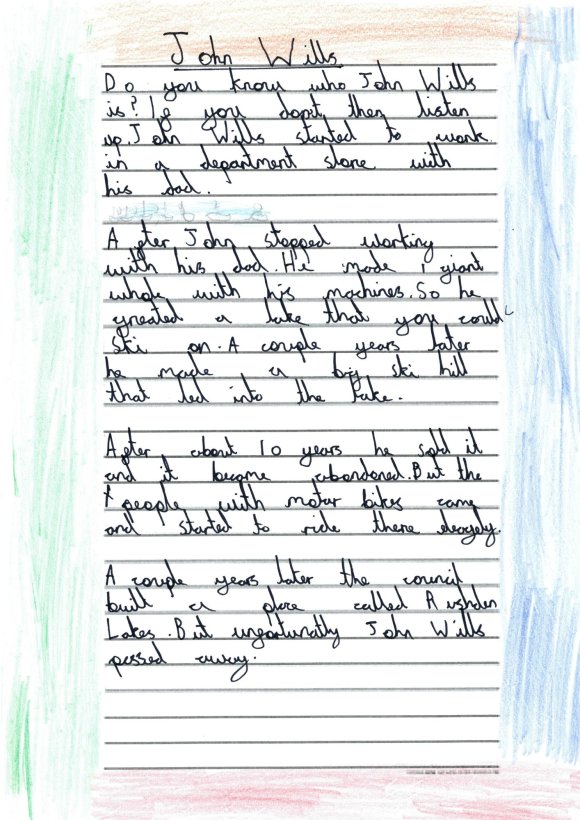 John Wills
Do you know who John Wills
is? If you don't then listen
up. John Wills started to work
in a department store with
his dad.
After John stopped working
with his dad. He made 1 giant
whole with his machines. So he
created a lake that you could
Ski on. A couple years later
he made a big ski hill
that led into the lake.
After about 10 years he sold it
and it became abandoned. But the
people with motar bikes came
and started to ride there
A couple years later the council
built a place called Rushden
Lakes. But unfortunatly John Wills
passed away.